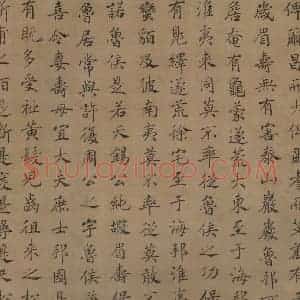 歲眉壽無有害泰山巖巖魯邦
詹奄有龜蒙遂荒大東至于海邦
淮夷來同莫不率從魯侯之功保
有鳧繹遂荒徐宅至于海邦淮
蠻貊及彼南夷莫不率從莫敢
諾魯侯是若天錫公純嘏眉壽保
魯居常與許復周公之宇魯侯
喜令妻壽母宜大夫庶士邦國是
有既多受祉黃髮兒齒徂來之松
之柏是斷是度是尋是
Shufazitao.com